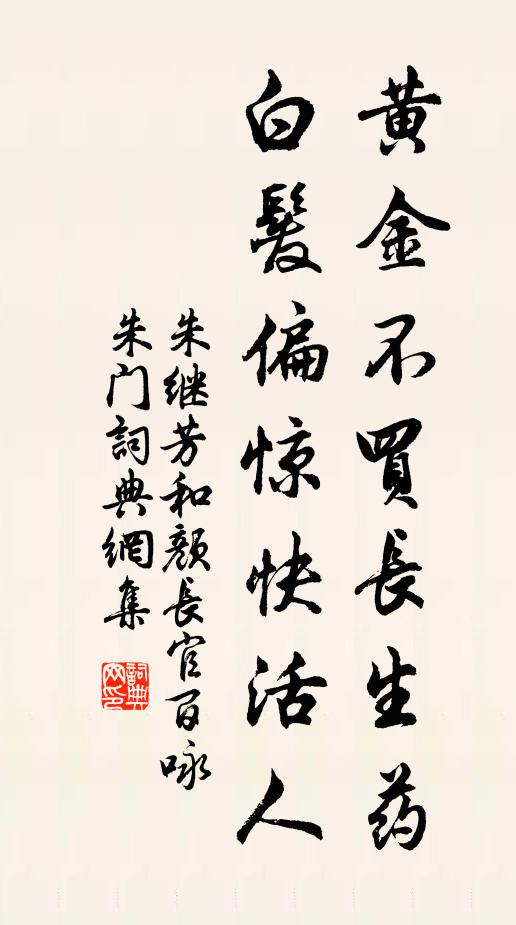 黄金不買長生药
白髮偏惊快活人
朱继芳和顔長官百咏
朱门詞典網集
詞典网印